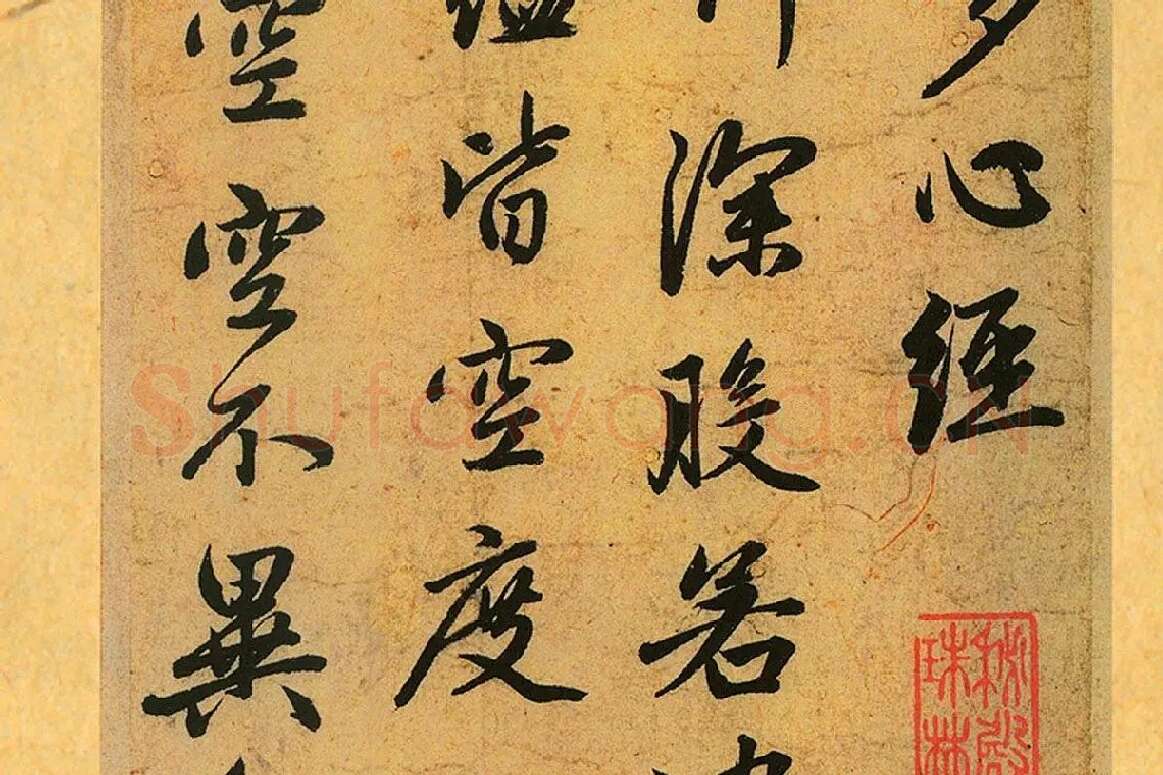 多心經
行深般若
蘊皆空度
空空不異
秘殿
珠林
Shufawang.CN